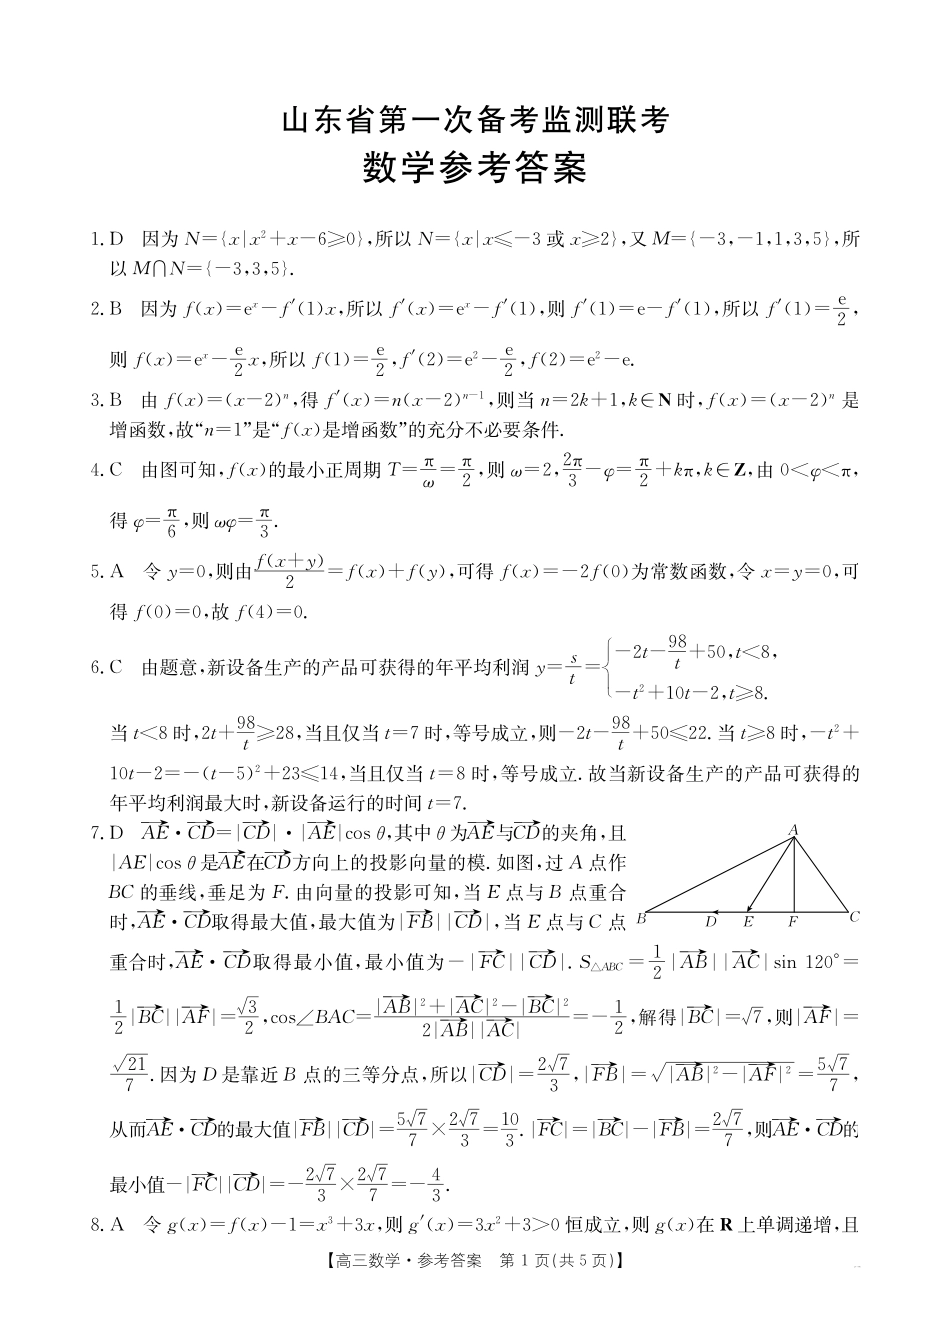 山东省第一次备考监测联考
数学参考答案
1. D 因为 N={x|x²+x-6⩾0},所以 N={x|x⩽-3 或 x⩾2},又 M={-3,-1,1,3,5},所
以 M∩N={-3,3,5}.
2. B 因为 f(x)=eˣ-f′(1)x,所以 f′(x)=eˣ-f′(1),则 f′(1)=e-f′(1),所以 f′(1)=e/2,
则 f(x)=eˣ-e/2x,所以 f(1)=e/2,f′(2)=e²-e/2,f(2)=e²-e.
3. B 由 f(x)=(x-2)ⁿ,得 f′(x)=n(x-2)ⁿ⁻¹,则当 n=2k+1,k∈N 时,f(x)=(x-2)ⁿ 是
增函数,故“n=1”是“f(x)是增函数”的充分不必要条件.
4. C 由图可知,f(x)的最小正周期 T=π/ω=π/2,则 ω=2,2π/3-φ=π/2+kπ,k∈Z,由 0<φ<π,
得 φ=π/6,则 ωφ=π/3.
5. A 令 y=0,则由f(x+y)/2=f(x)+f(y),可得 f(x)=-2f(0)为常数函数,令 x=y=0,可
得 f(0)=0,故 f(4)=0.
6. C 由题意,新设备生产的产品可获得的年平均利润 y=s/t={-2t-98/t+50,t<8,
-t²+10t-2,t⩾8.
当 t<8 时,2t+98/t⩾28,当且仅当 t=7 时,等号成立,则-2t-98/t+50⩽22. 当 t⩾8 时,-t²+
10t-2=-(t-5)²+23⩽14,当且仅当 t=8 时,等号成立. 故当新设备生产的产品可获得的
年平均利润最大时,新设备运行的时间 t=7.
7. D AE→·CD→=|CD→|·|AE→|cos θ,其中 θ 为AE→与CD→的夹角,且
|AE|cos θ 是AE→在CD→方向上的投影向量的模. 如图,过 A 点作
BC 的垂线,垂足为 F. 由向量的投影可知,当 E 点与 B 点重合
时,AE→·CD→取得最大值,最大值为|FB→||CD→|,当 E 点与 C 点
A
B D E F C
重合时,AE→·CD→取得最小值,最小值为-|FC→||CD→|. S△ABC=1/2|AB→||AC→|sin 120°=
1/2|BC→||AF→|=√3/2,cos∠BAC=(|AB→|²+|AC→|²-|BC→|²)/(2|AB→||AC→|)=-1/2,解得|BC→|=√7,则|AF→|=
√21/7. 因为 D 是靠近 B 点的三等分点,所以|CD→|=2√7/3,|FB→|=√(|AB→|²-|AF→|²)=5√7/7,
从而AE→·CD→的最大值|FB→||CD→|=5√7/7×2√7/3=10/3. |FC→|=|BC→|-|FB→|=2√7/7,则AE→·CD→的
最小值-|FC→||CD→|=-2√7/3×2√7/7=-4/3.
8. A 令 g(x)=f(x)-1=x³+3x,则 g′(x)=3x²+3>0 恒成立,则 g(x)在 R 上单调递增,且
【高三数学·参考答案 第 1 页(共 5 页)】